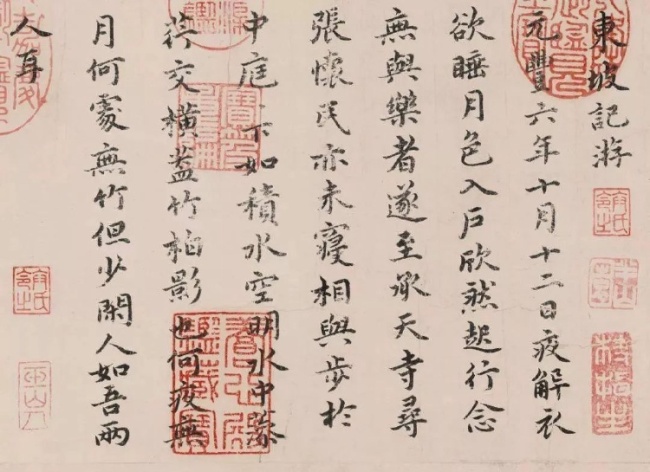 東坡記游
元豐六年十月十二日夜解衣
欲睡月色入户欣然起行念
無與樂者遂至承天寺尋
張懷民亦未寢相與步於
中庭下如積水空明水中藻
荇交橫蓋竹柏影也何夜無
月何處無竹但少閑人如吾兩
人耳